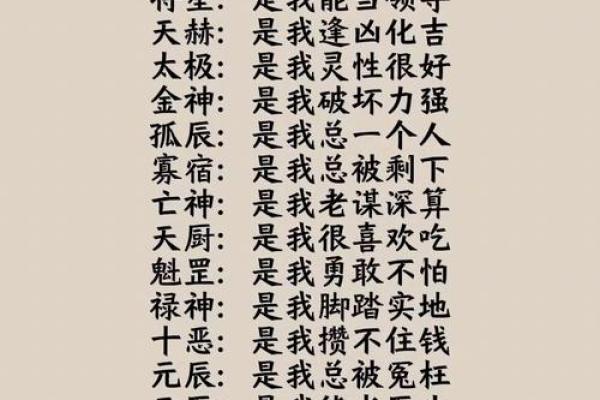 将星：是我能当领导
天赫：是我逢凶化吉
太极：是我灵性很好
金神：是我破坏力强
孤辰：是我总一个人
寡宿：是我总被剩下
亡神：是我老谋深算
天厨：是我很喜欢吃
魁罡：是我勇敢不怕
禄神：是我脚踏实地
十恶：是我攒不住钱
元辰：是我总被冤枉